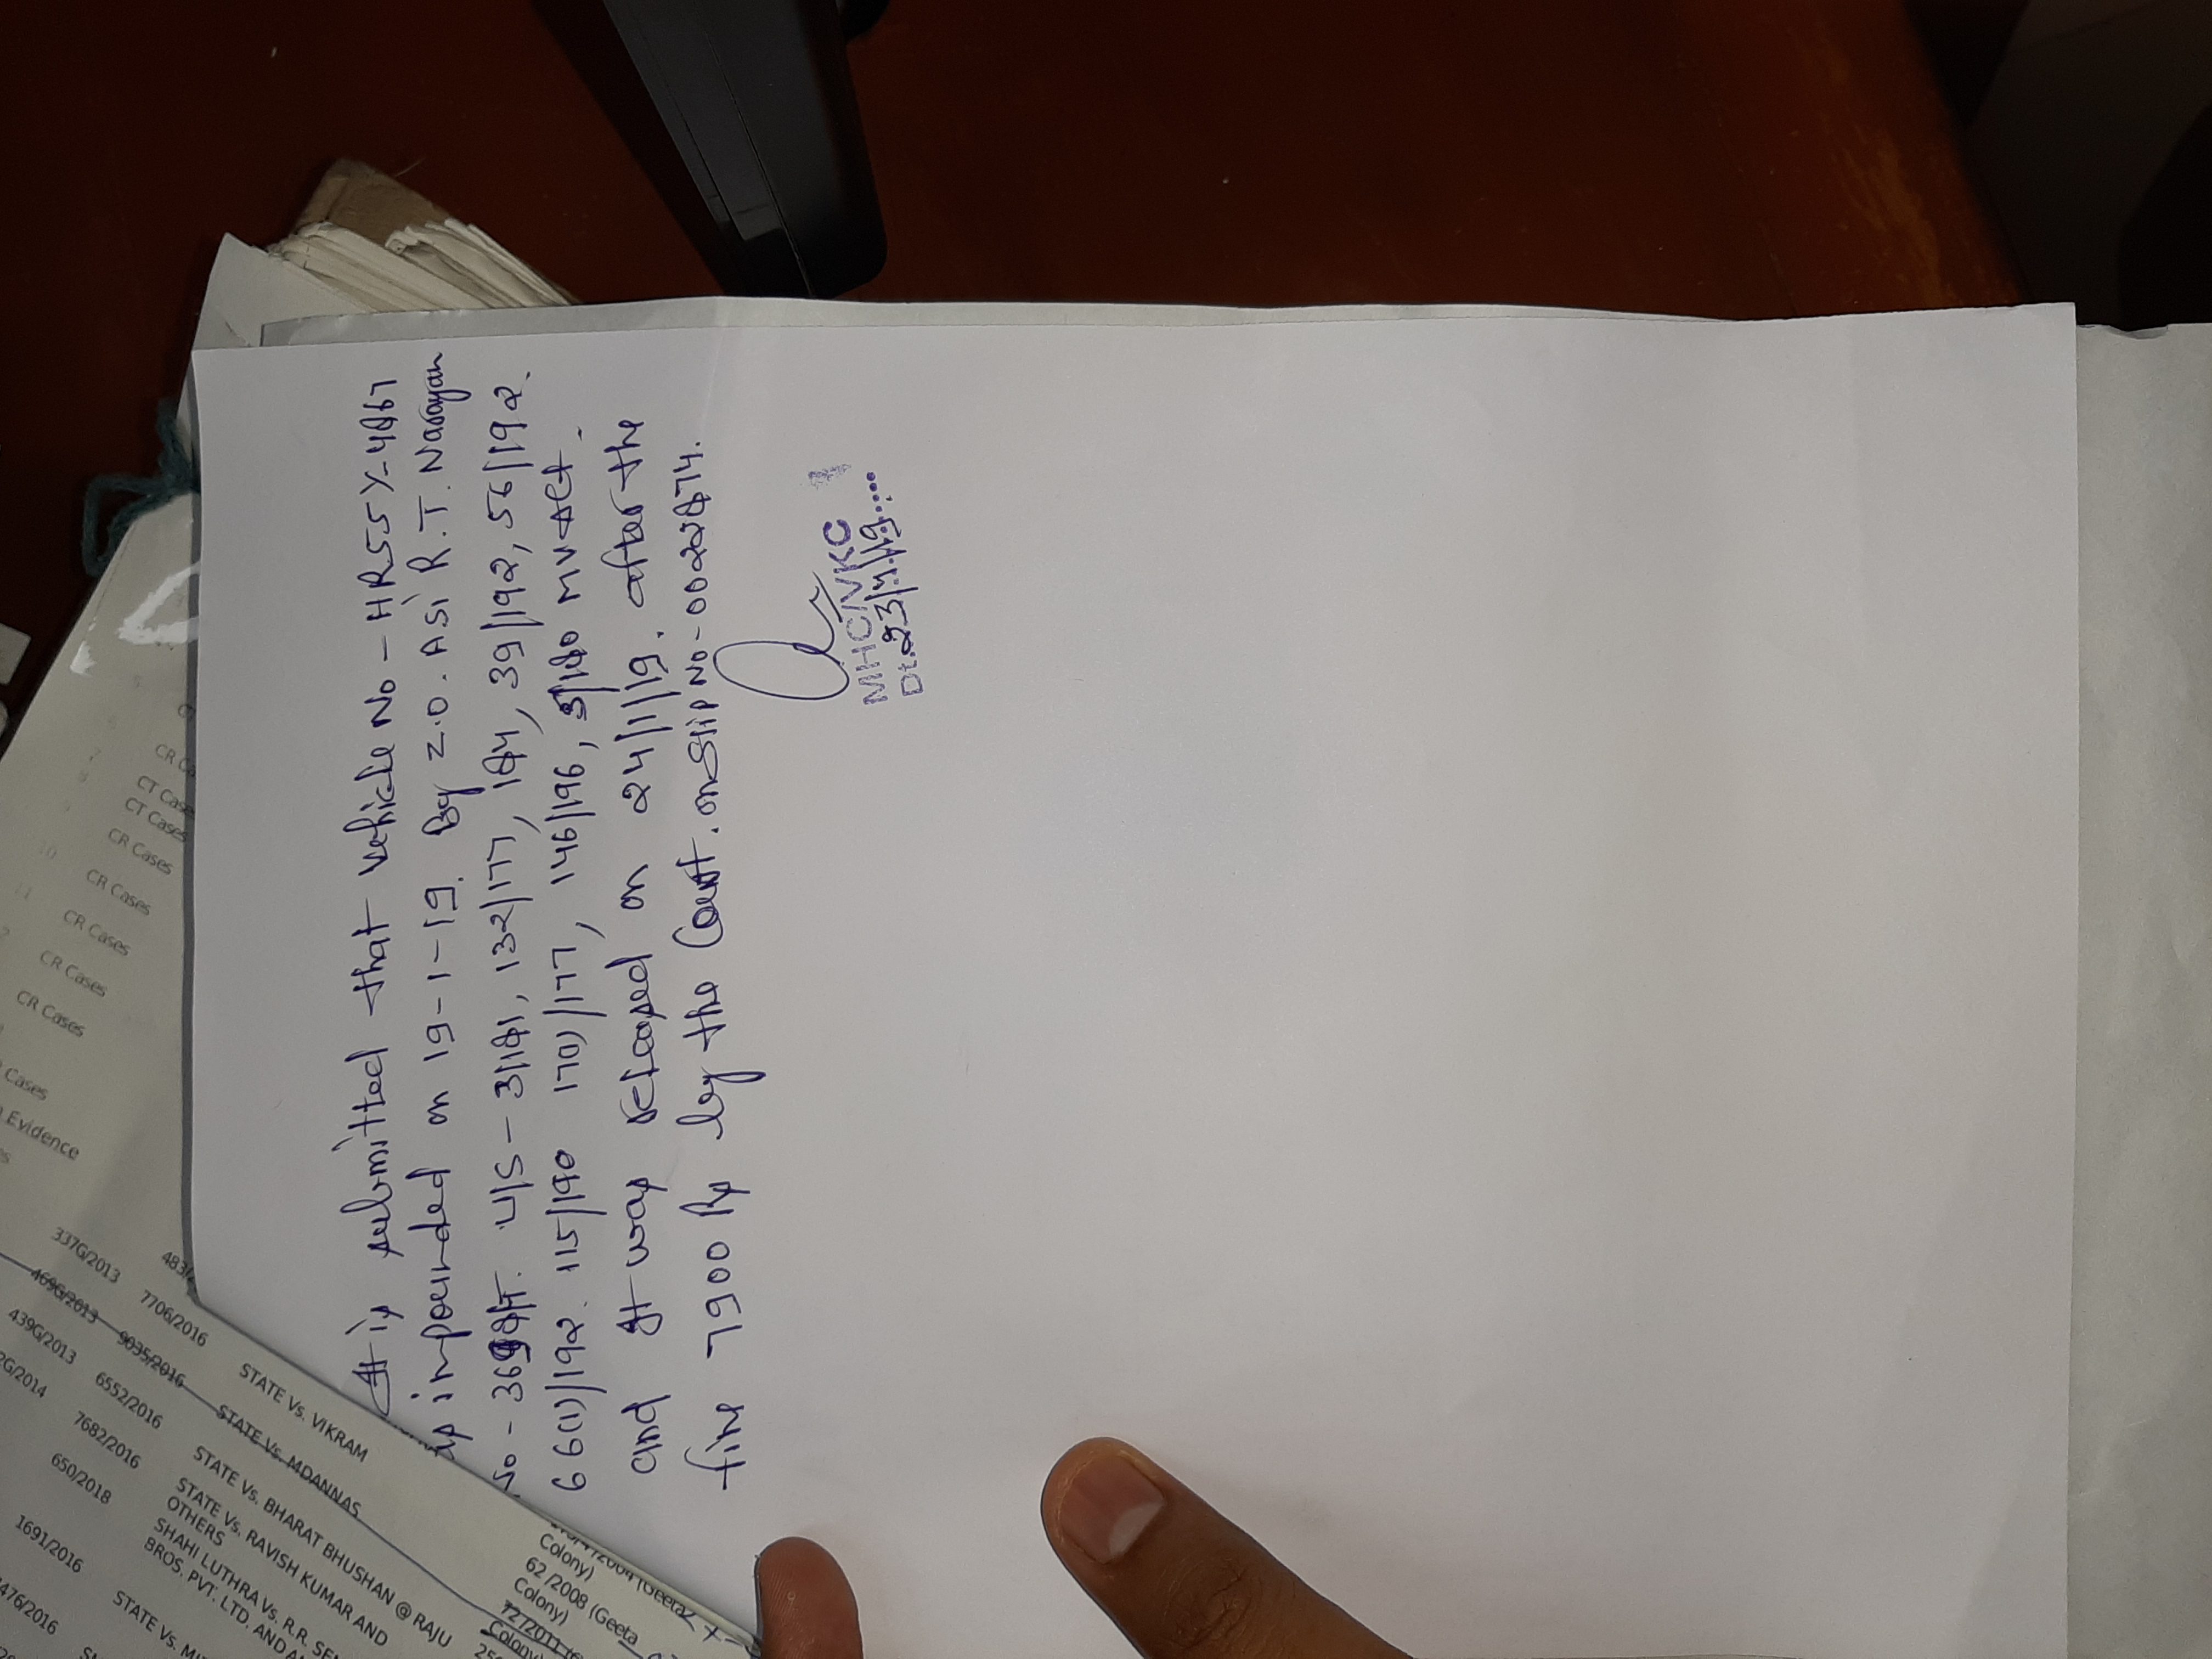 It is submitted that vehicle No - HR55X-4867
is impounded on 19-1-19. By Z.O. ASI R.T. Narayan
No - 3698/T. U/S - 3/181, 132/177, 184, 39/192, 56/192.
66(1)/192. 115/190 17(1)/177, 146/196, 5/180 MV Act.
and It was released on 24/1/19. after the
fine 7900 Rs by the Court. on Slip No-0022874.
MHC/VKC
Dt. 23/7/19....
CR Ca
CT Case
CT Cases
CR Cases
CR Cases
CR Cases
CR Cases
CR Cases
Cases
Evidence
337G/2013
483/
469G/2013
7706/2016
STATE Vs. VIKRAM
439G/2013
9035/2016
STATE Vs. MDANNAS
2G/2014
6552/2016
STATE Vs. BHARAT BHUSHAN @ RAJU
7682/2016
STATE Vs. RAVISH KUMAR AND
OTHERS
650/2018
SHAHI LUTHRA Vs. R.R. SE
BROS. PVT. LTD. AND A
1691/2016
STATE Vs. M
476/2016
Colony)
62 /2008 (Geeta
Colony)
727/2011
Colony)